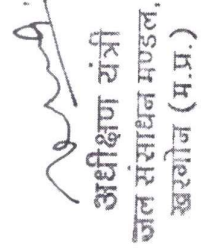 अधीक्षण यंत्री
जल संसाधन मण्डल,
खरगोन (म.प्र.)